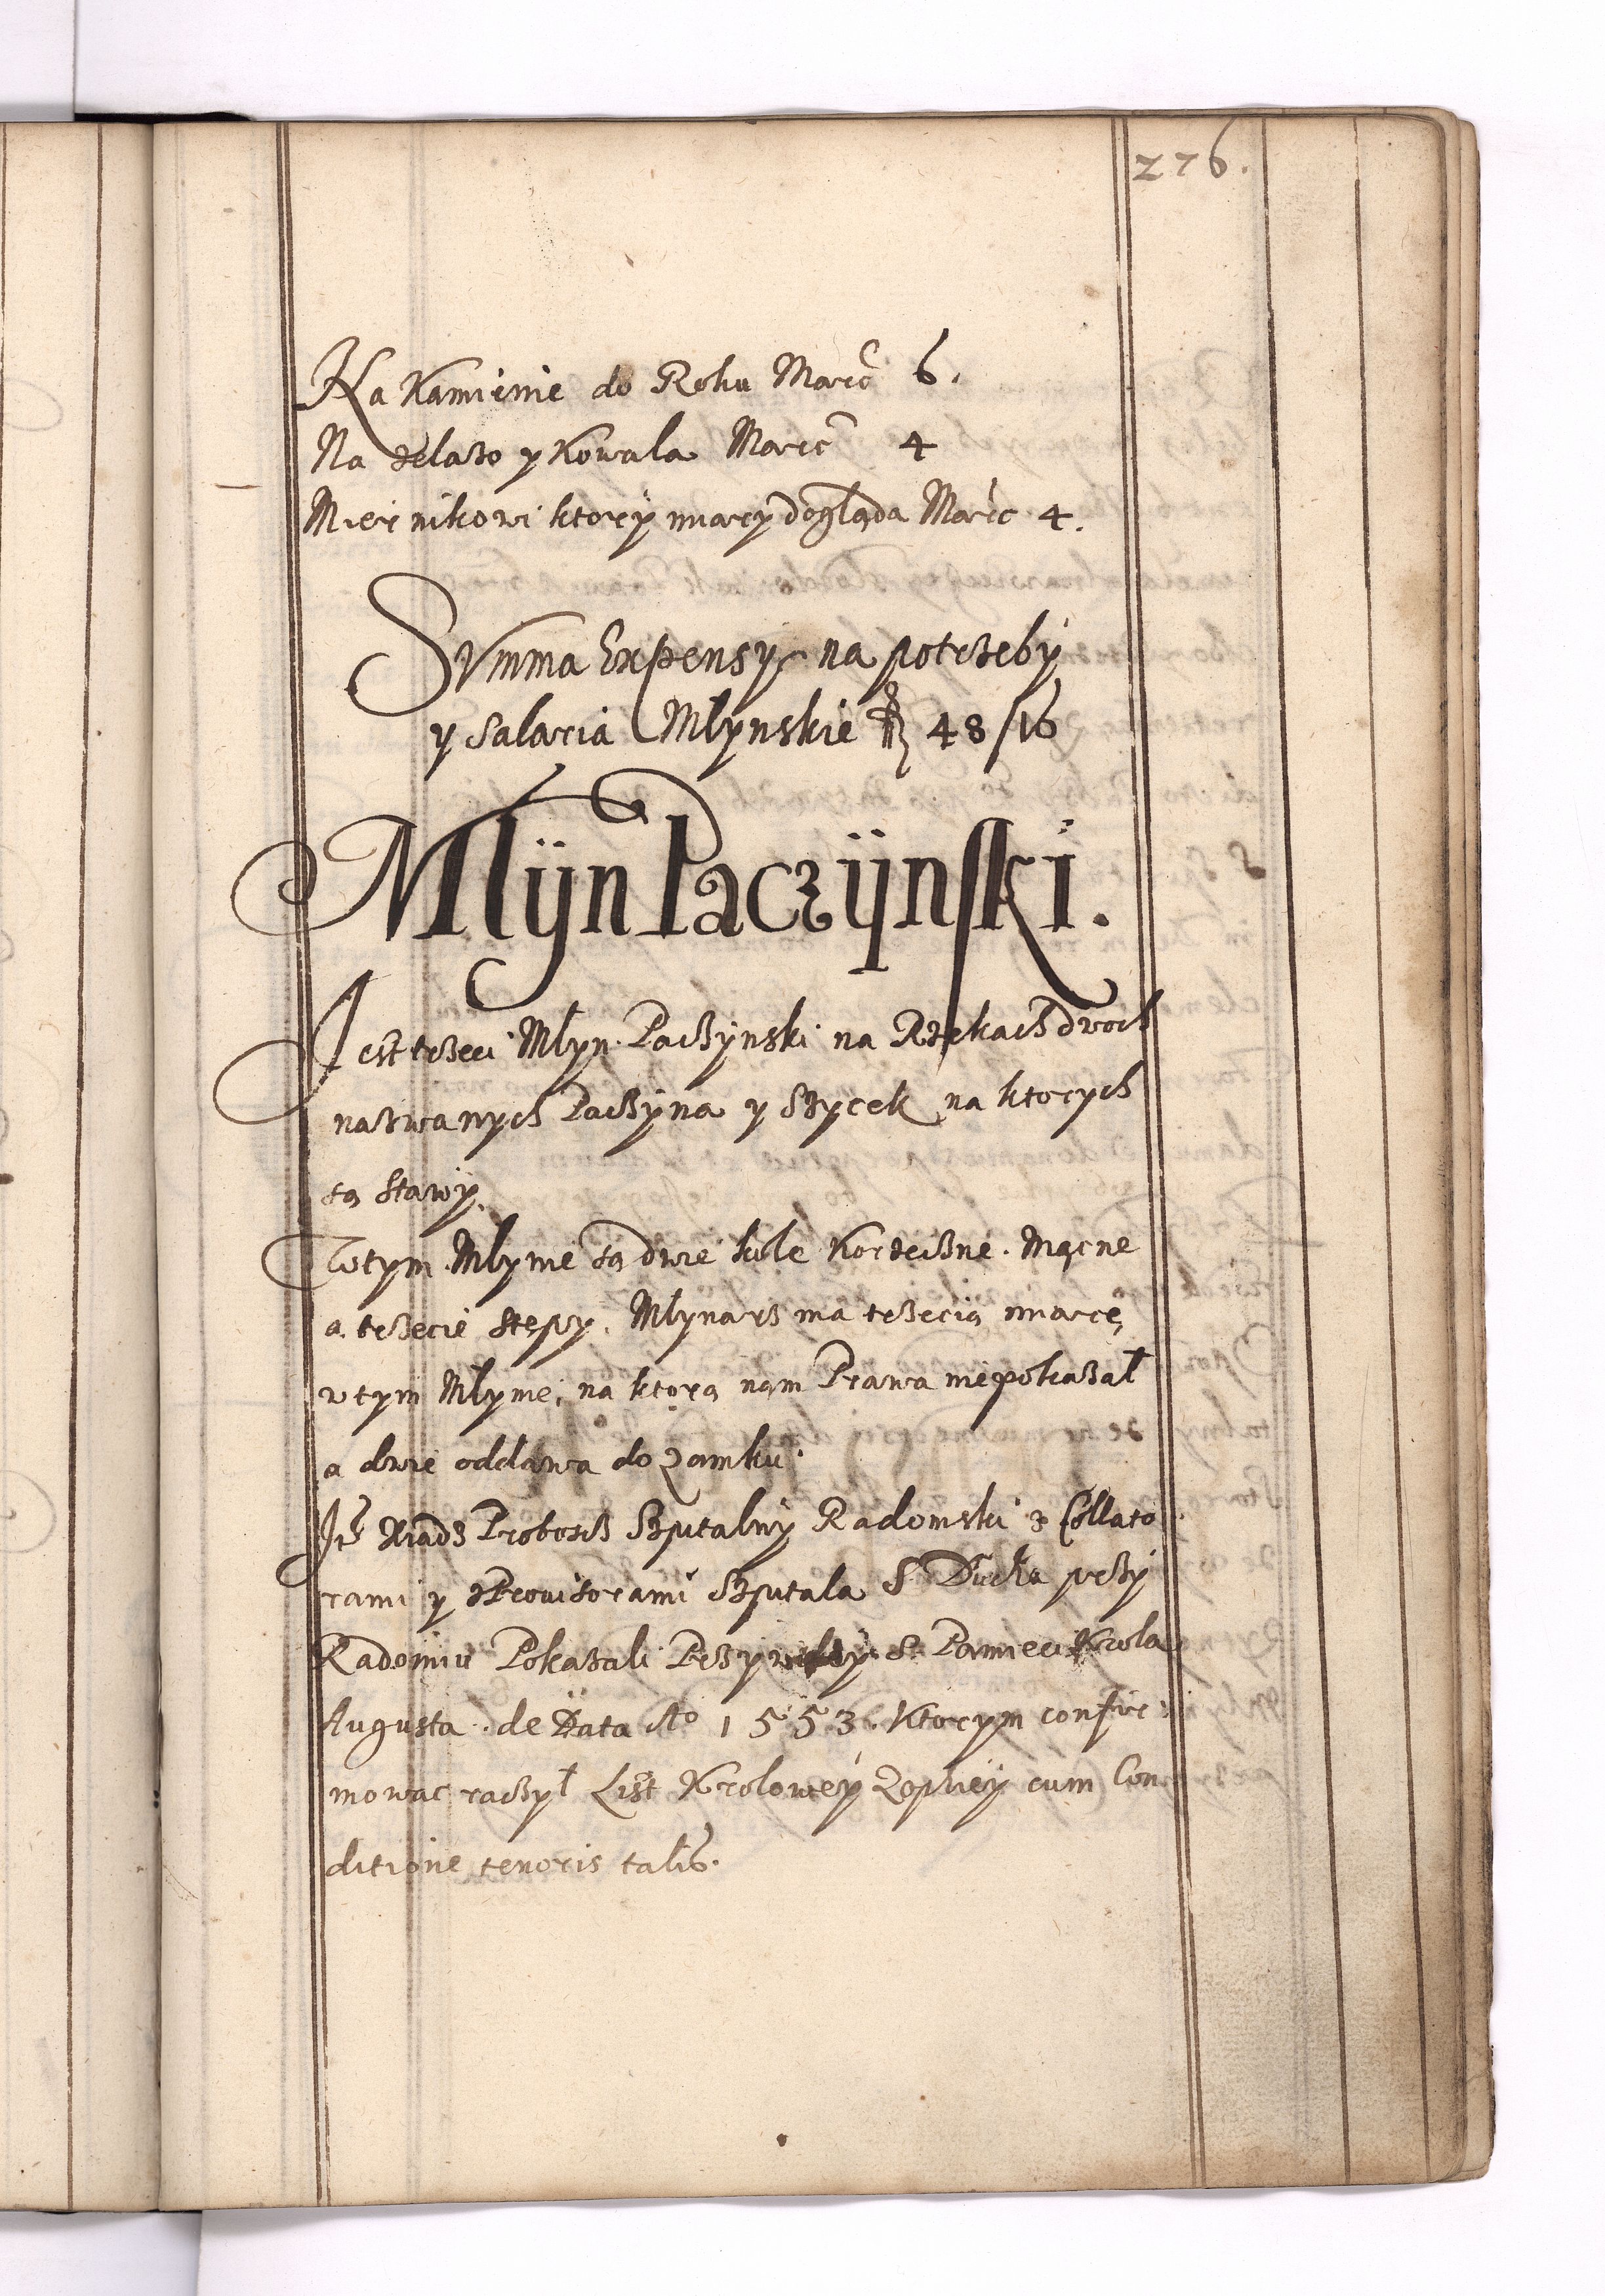 276.
Na Kamienie do Roku Marc 6.
Na żelazo y Kowala Marc 4
Miernikowi ktory miary dogląda Marc 4.
Summa Expensy na potrzeby
y Salaria Młynskie fl 48/16
Mlÿn Paczÿnski.
Jest trzeci Młyn Paczynski na Rzekach dwoch
nazwanych Paczyna y Szycek na ktorych
są Stawy.
W tym Młynie są dwie kole Korzeczne. Mączne
a trzecie Stępy. Młynarz ma trzecią miarę
w tym Młynie, na ktorą nam Prawa niepokazał
a dwie oddawa do Zamku.
Xiądz Proboszcz Szpitalny Radomski z Collato
rami y Prouisorami Szpitala S Ducha przy
Radomiu Pokazali Przywiley S. Pamięci Krola
Augusta. de Data Aº 1553. Ktorym confir
mowac raczył List Krolowey Zophiey cum Con
ditione tenoris talis.